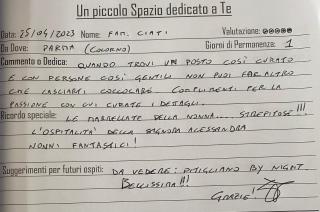 Un piccolo Spazio dedicato a Te
Data: 25/04/2023 Nome: FAM. CIATI Valutazione:
Da Dove: PARMA (COLORNO) Giorni di Permanenza: 1
Commento o Dedica: QUANDO TROVI UN POSTO COSÌ CURATO
E CON PERSONE COSÌ GENTILI NON PUOI FAR ALTRO
CHE LASCIARTI COCCOLARE. COMPLIMENTI PER LA
PASSIONE CON CUI CURATE I DETTAGLI.
Ricordo speciale: LE MARMELLATE DELLA NONNA.... STREPITOSE!!!
L'OSPITALITA' DELLA SIGNORA ALESSANDRA
NONNI FANTASTICI!
Suggerimenti per futuri ospiti: DA VEDERE: PITIGLIANO BY NIGHT
BELLISSIMA!!!
GRAZIE!